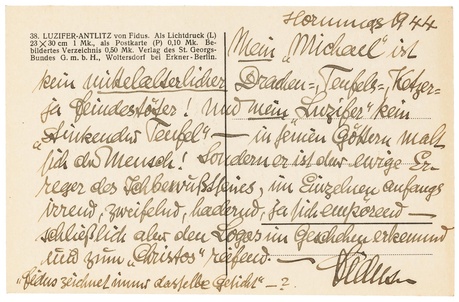 38. LUZIFER-ANTLITZ von Fidus. Als Lichtdruck (L)
23 × 30 cm 1 Mk., als Postkarte (P) 0,10 Mk. Be-
bildertes Verzeichnis 0,50 Mk. Verlag des St. Georgs-
Bundes G. m. b. H., Woltersdorf bei Erkner-Berlin.
Hornungs 1944
Mein „Michael" ist
kein mittelalterlicher Drachen-, Teufels-, Ketzer-
ja Feindestöter! Und mein „Luzifer" kein
„stinkender Teufel" — in seinen Göttern malt
sich der Mensch! Sondern er ist der ewige Er-
reger des Ichbewußtseins, im Einzelnen anfangs
irrend, zweifelnd, hadernd, ja sich empörend —
schließlich aber den Logos im Geschehn erkennend
und zum „Christos" reifend. —
Fidus.
„Fidus zeichnet immer dasselbe Gesicht" — ?